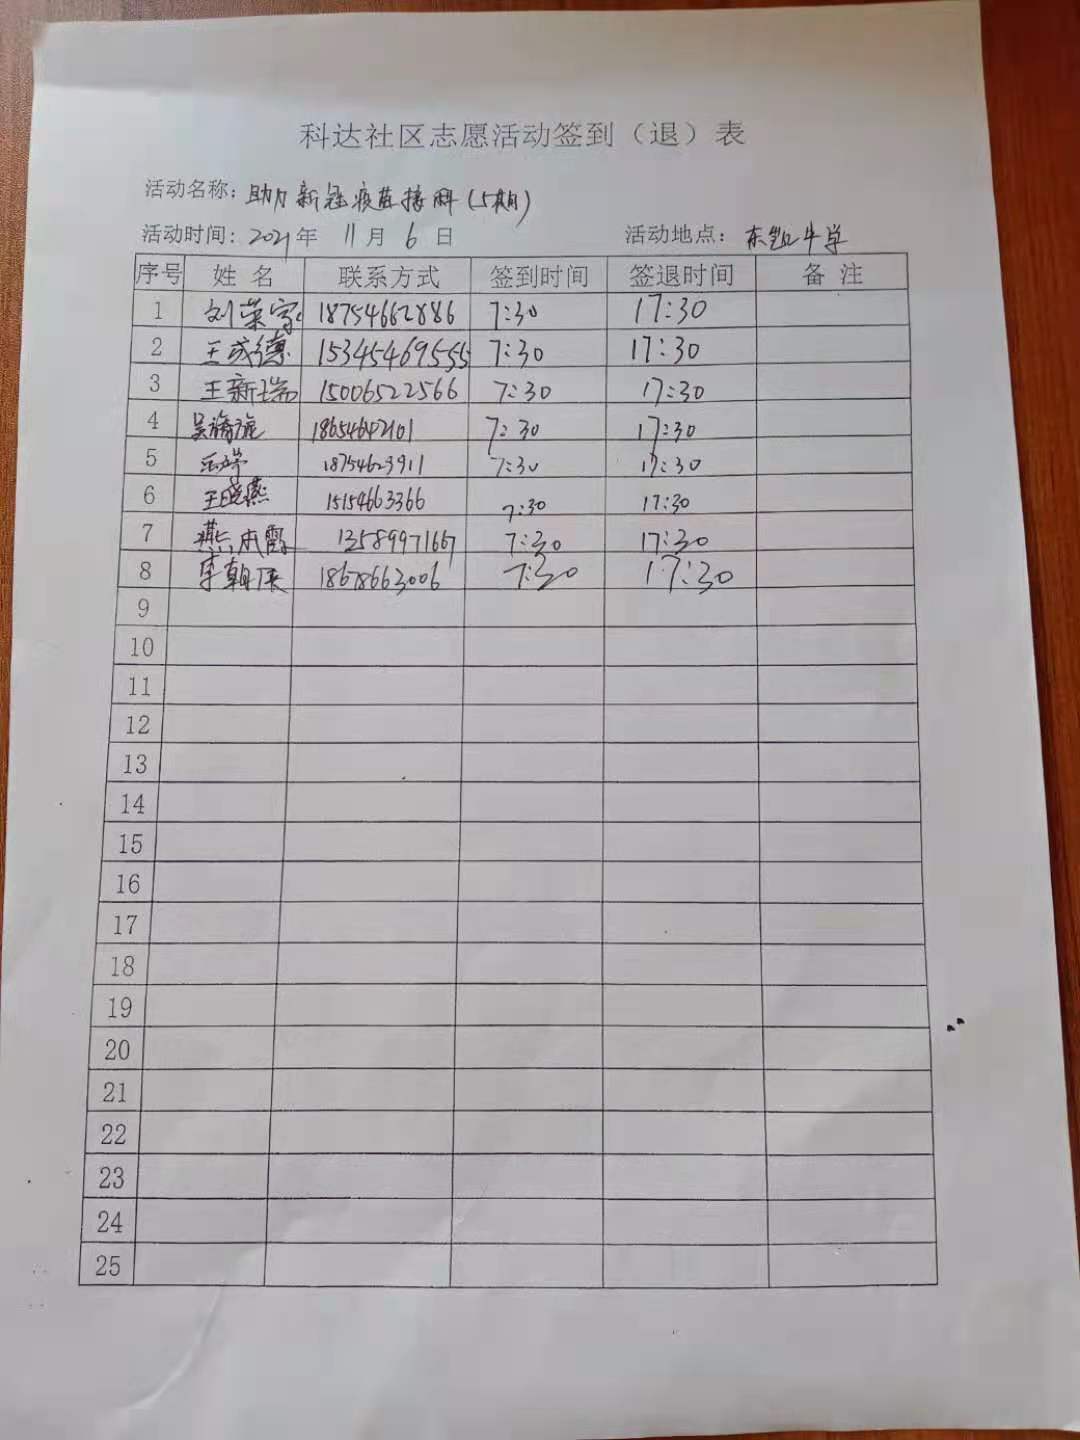 科达社区志愿活动签到（退）表
活动名称：助力新冠疫苗接种（5期）
活动时间：2021年 11月 6日 活动地点：东凯中学
序号 姓名 联系方式 签到时间 签退时间 备注
1 刘荣家 18754662886 7:30 17:30
2 王成德 15345469555 7:30 17:30
3 王新瑞 15006522566 7:30 17:30
4 18654642101 7:30 17:30
5 18754629911 7:30 17:30
6 王晓燕 15154663366 7:30 17:30
7 燕 霞 13589971667 7:30 17:30
8 李朝 18678663006 7:30 17:30
9
10
11
12
13
14
15
16
17
18
19
20
21
22
23
24
25